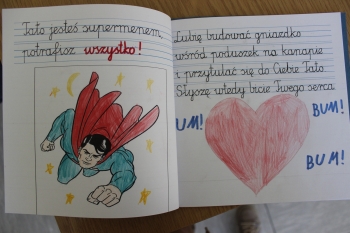 Tato jesteś supermenem,
potrafisz wszystko!
Lubię budować gniazdko
wśród poduszek na kanapie
i przytulać się do Ciebie Tato.
Słyszę wtedy bicie Twego serca
BUM!
BUM!
BUM!